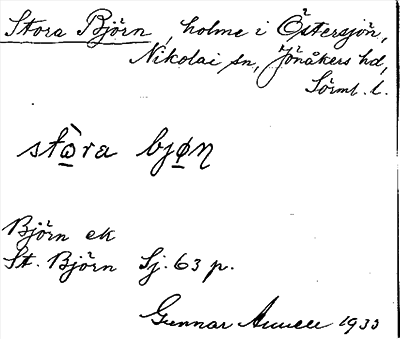 Stora Björn, holme i Östersjön,
Nikolai sn, Jönåkers hd,
Sörml. l.
stɷ̀ra bjøn̥
Björn ek
St. Björn Sj. 63 p.
Gunnar 1933